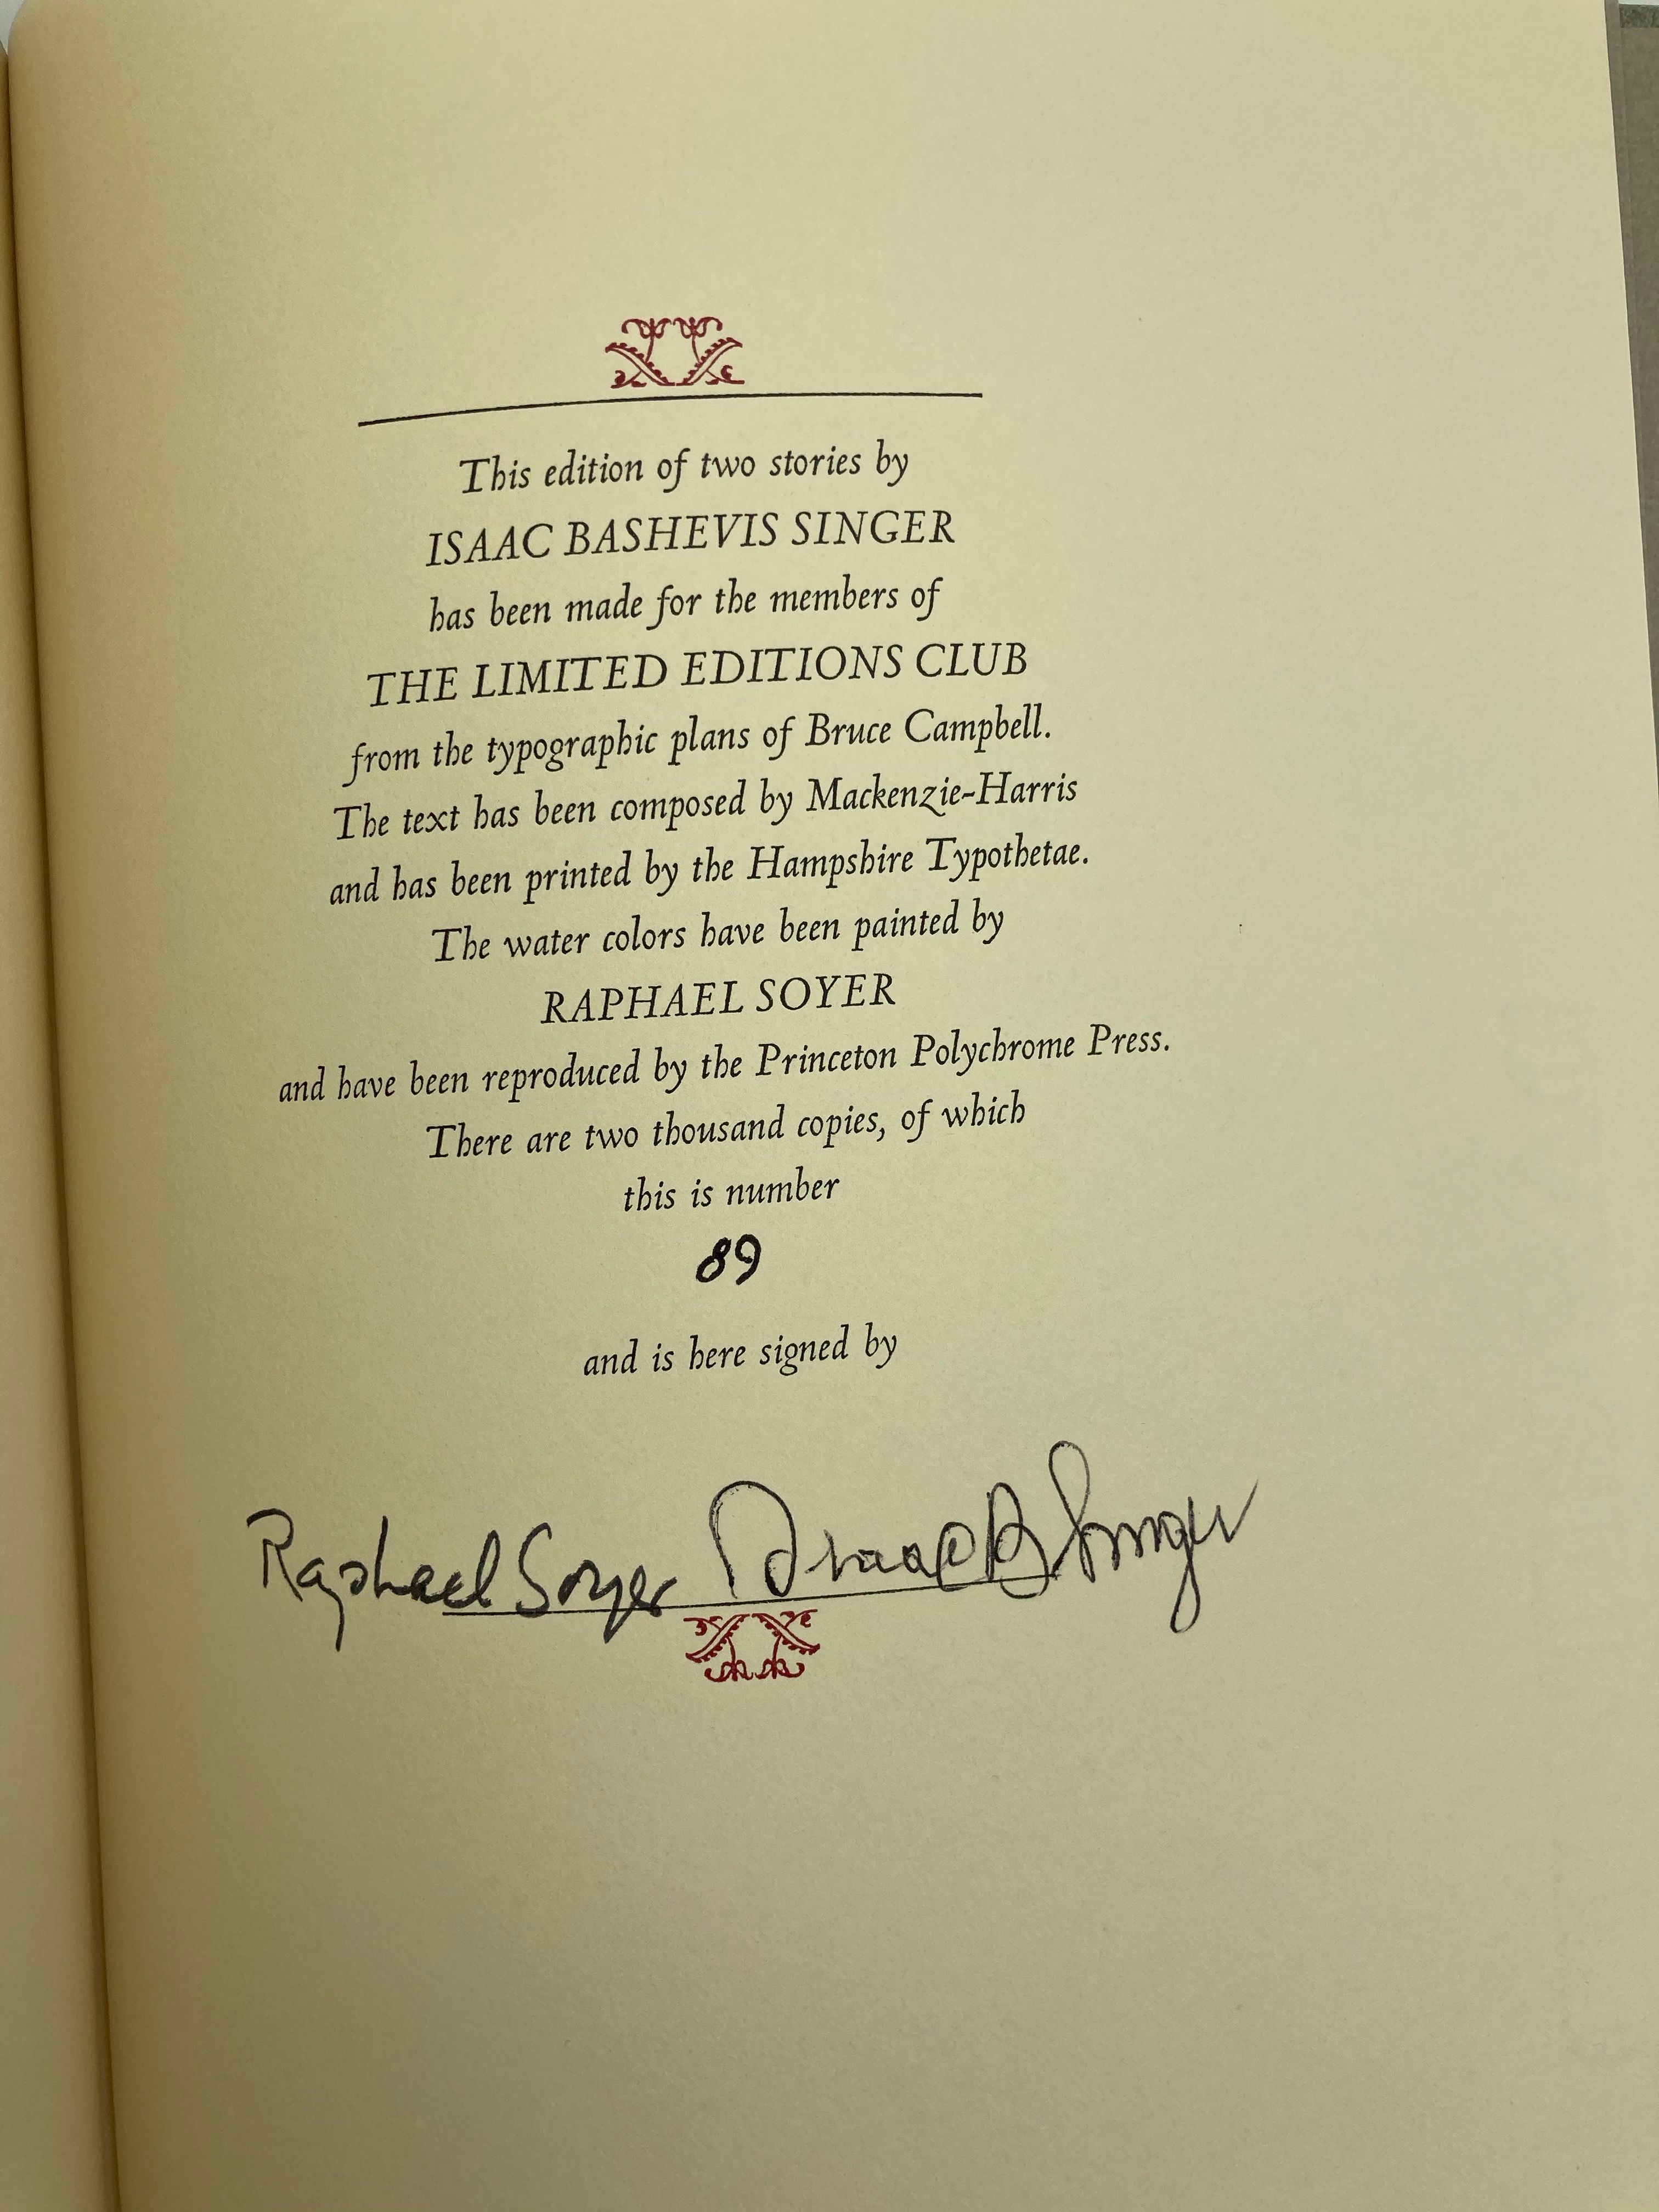 This edition of two stories by
ISAAC BASHEVIS SINGER
has been made for the members of
THE LIMITED EDITIONS CLUB
from the typographic plans of Bruce Campbell.
The text has been composed by Mackenzie-Harris
and has been printed by the Hampshire Typothetae.
The water colors have been painted by
RAPHAEL SOYER
and have been reproduced by the Princeton Polychrome Press.
There are two thousand copies, of which
this is number
89
and is here signed by
Raphael Soyer Isaac B Singer